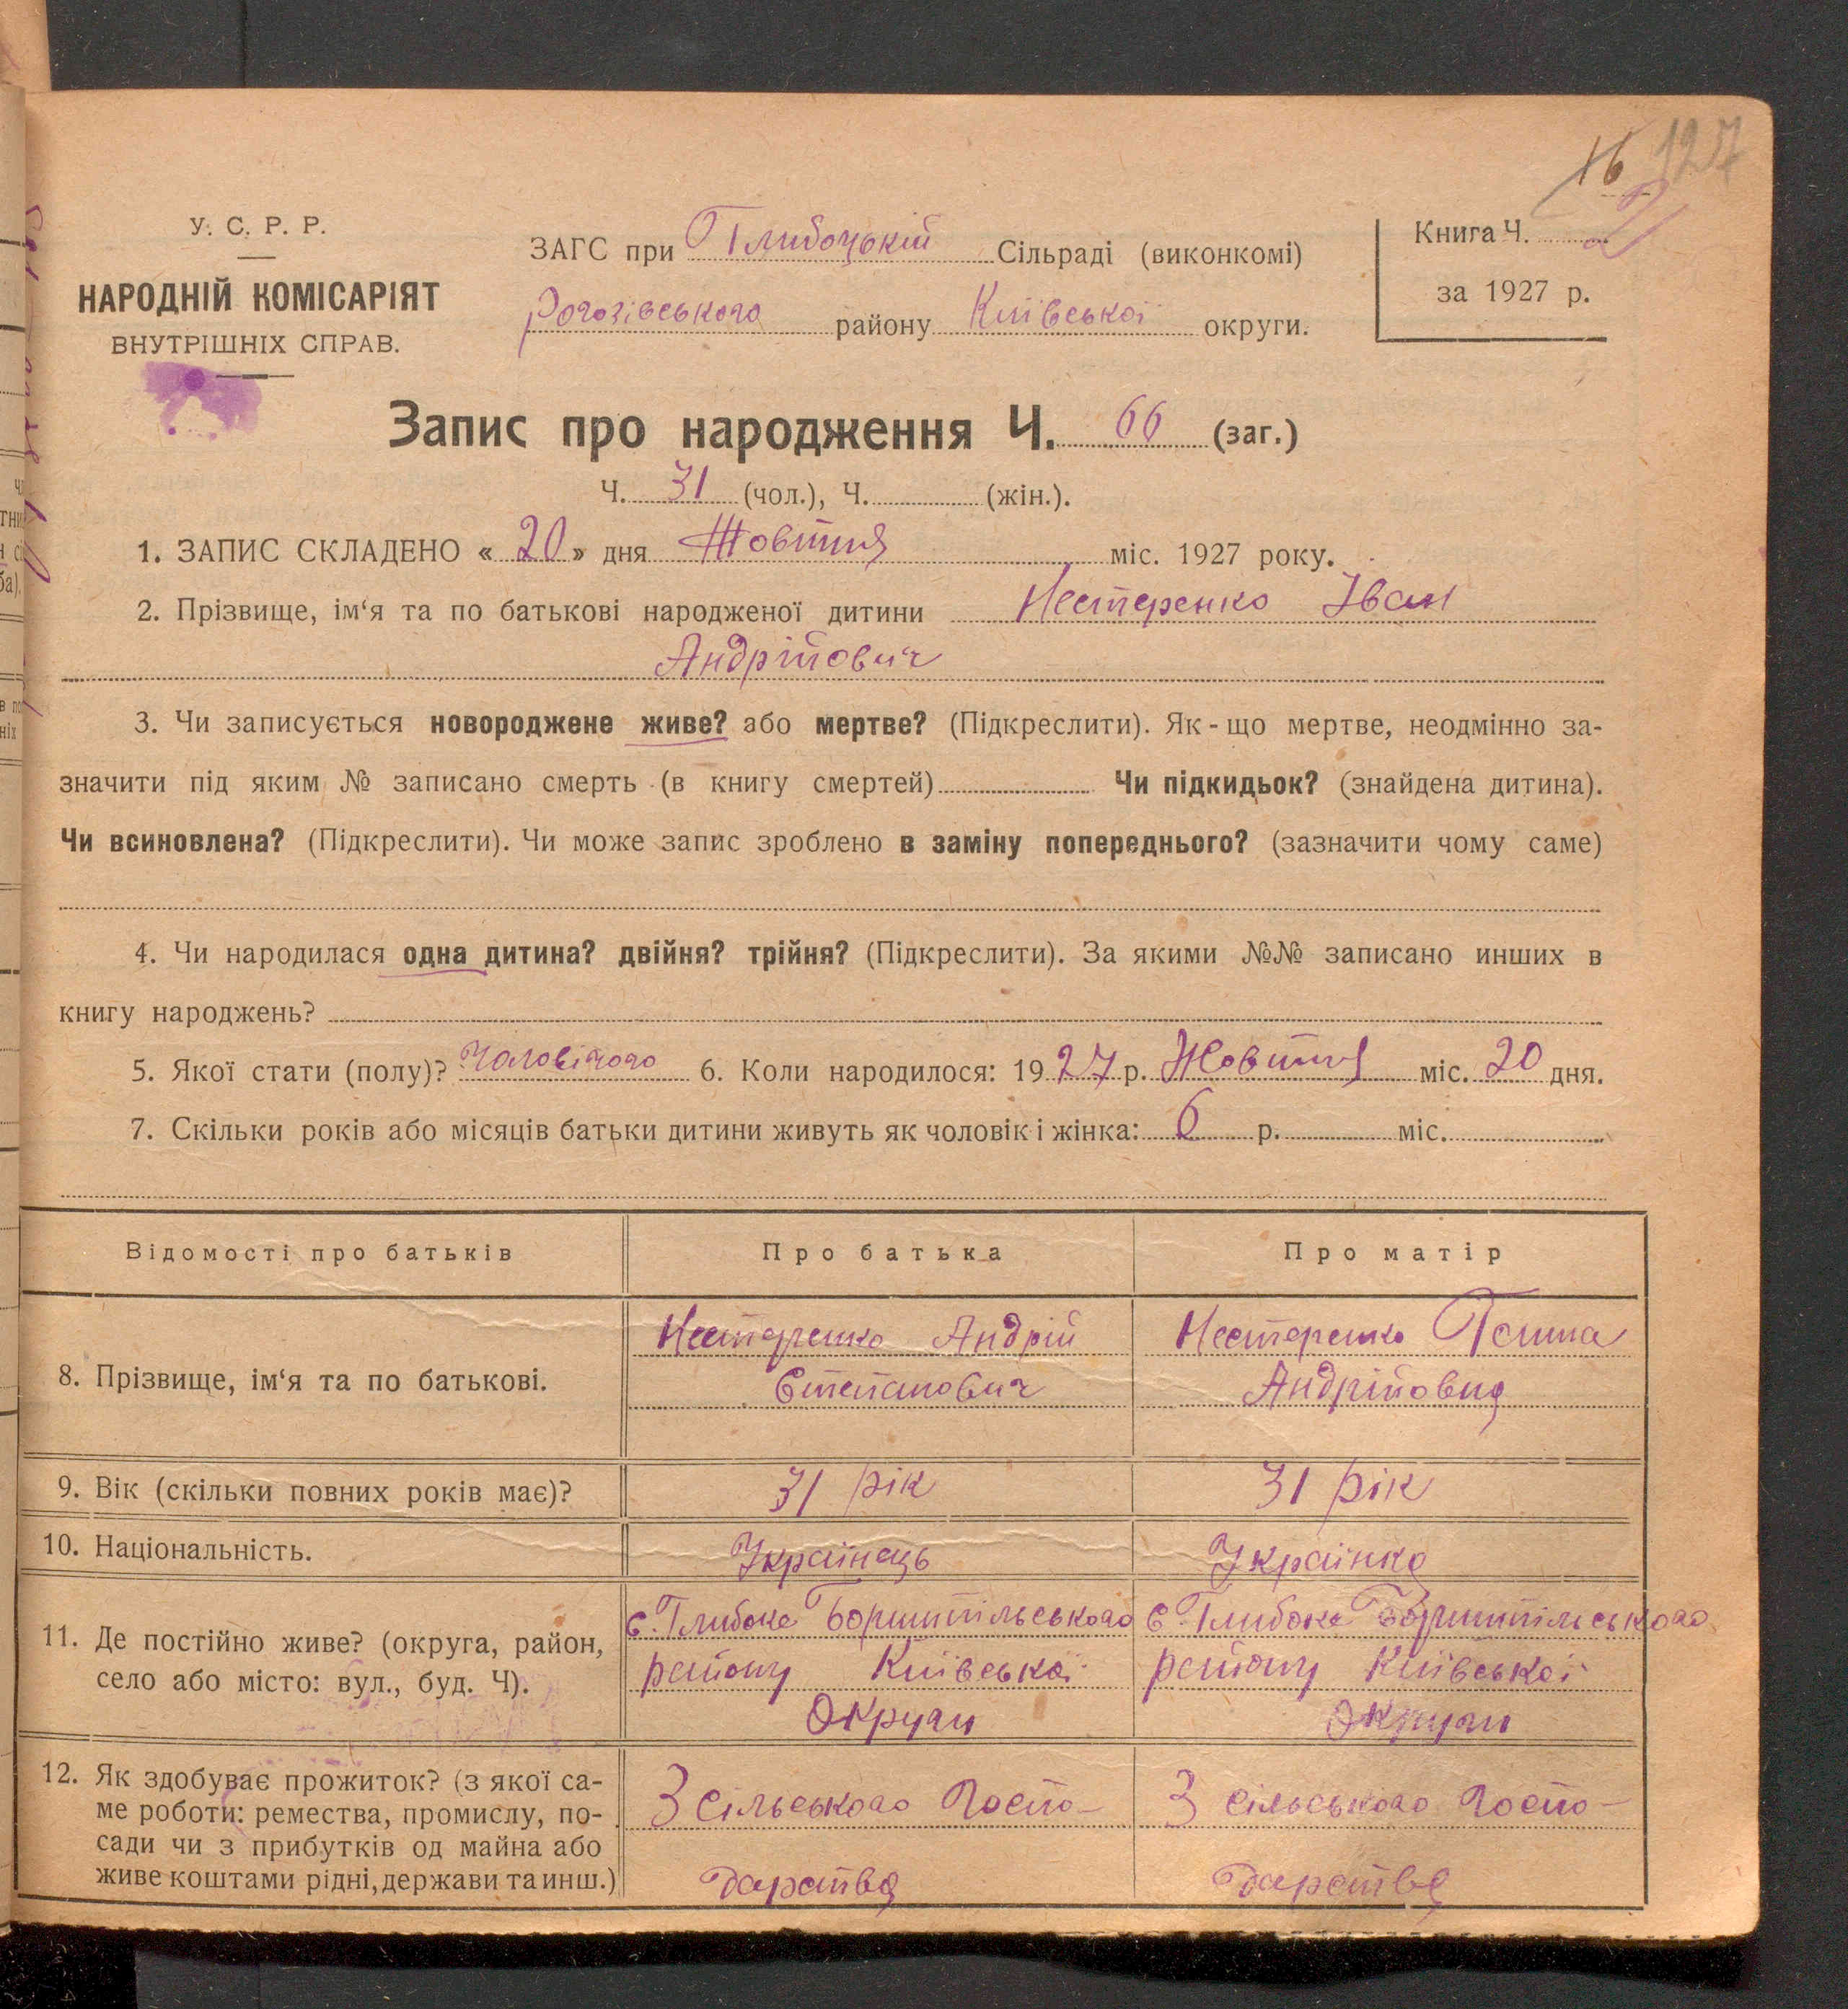 16 127
У. С. Р. Р.
НАРОДНІЙ КОМІСАРІЯТ
ВНУТРІШНІХ СПРАВ.
ЗАГС при Глибоцькій Сільраді (виконкомі)
Рогозівського району Київської округи.
Книга Ч. 2
за 1927 р.
Запис про народження Ч. 66 (заг.)
Ч. 31 (чол.), Ч. (жін.).
1. ЗАПИС СКЛАДЕНО « 20 » дня Жовтня міс. 1927 року.
2. Прізвище, ім‘я та по батькові народженої дитини Нестеренко Іван
Андрійович
3. Чи записується новороджене живе? або мертве? (Підкреслити). Як-що мертве, неодмінно за-
значити під яким № записано смерть (в книгу смертей) Чи підкидьок? (знайдена дитина).
Чи всиновлена? (Підкреслити). Чи може запис зроблено в заміну попереднього? (зазначити чому саме)
4. Чи народилася одна дитина? двійня? трійня? (Підкреслити). За якими №№ записано инших в
книгу народжень?
5. Якої стати (полу)? Чоловічого 6. Коли народилося: 1927 р. Жовтня міс. 20 дня.
7. Скільки років або місяців батьки дитини живуть як чоловік і жінка: 6 р. міс.
Відомості про батьків Про батька Про матір
8. Прізвище, ім‘я та по батькові.
Нестеренко Андрій
Степанович
Нестеренко Ганна
Андрійовна
9. Вік (скільки повних років має)? 31 рік 31 рік
10. Національність. Українець Українка
11. Де постійно живе? (округа, район,
село або місто: вул., буд. Ч).
с. Глибоке Бориспільського
району Київської
Округи
с. Глибоке Бориспільського
району Київської
Округи
12. Як здобуває прожиток? (з якої са-
ме роботи: ремества, промислу, по-
сади чи з прибутків од майна або
живе коштами рідні, держави та инш.)
З сільського госпо-
дарства
З сільського госпо-
дарства